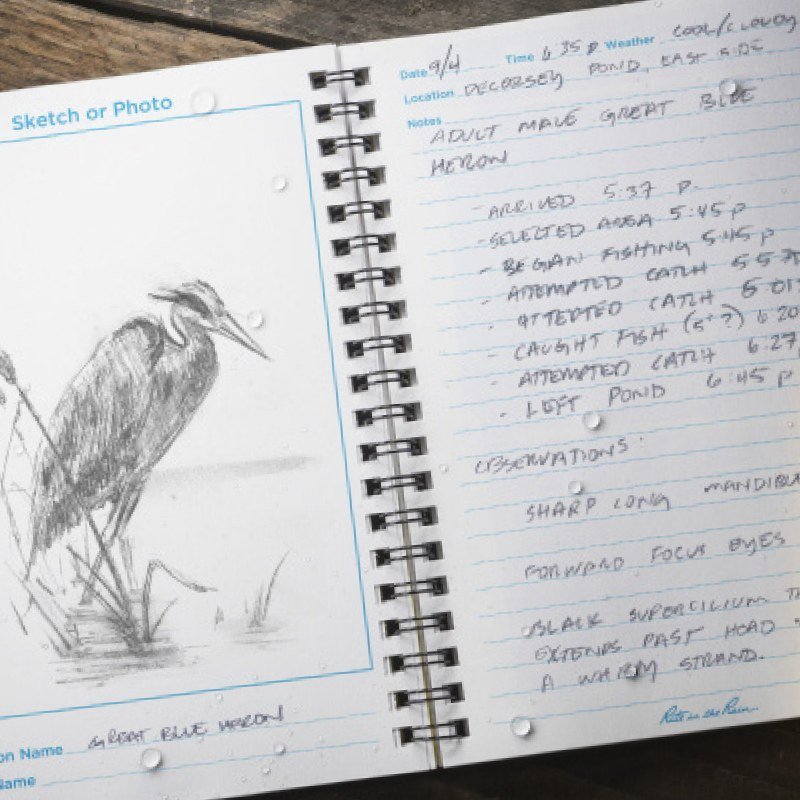 Sketch or Photo
on Name GREAT BLUE HERON
Name
Date 9/4 Time 6 35 P Weather COOL/CLOUDY
Location DECORSEY POND, EAST SIDE
Notes
ADULT MALE GREAT BLUE
HERON
- ARRIVED 5:37 P.
- SELECTED AREA 5:45 P
- BEGAN FISHING 5:45 P
- ATTEMPTED CATCH 5 57
- ATTEPTED CATCH 6 01
- CAUGHT FISH (5"?) 6 20
- ATTEMPTED CATCH 6:27
- LEFT POND 6:45 P
OBSERVATIONS:
SHARP LONG MANDIBL
FORWARD FOCUS EYES
BLACK SUPERCILIUM
EXTENDS PAST HEAD
A WHISPY STRAND.
Rite in the Rain